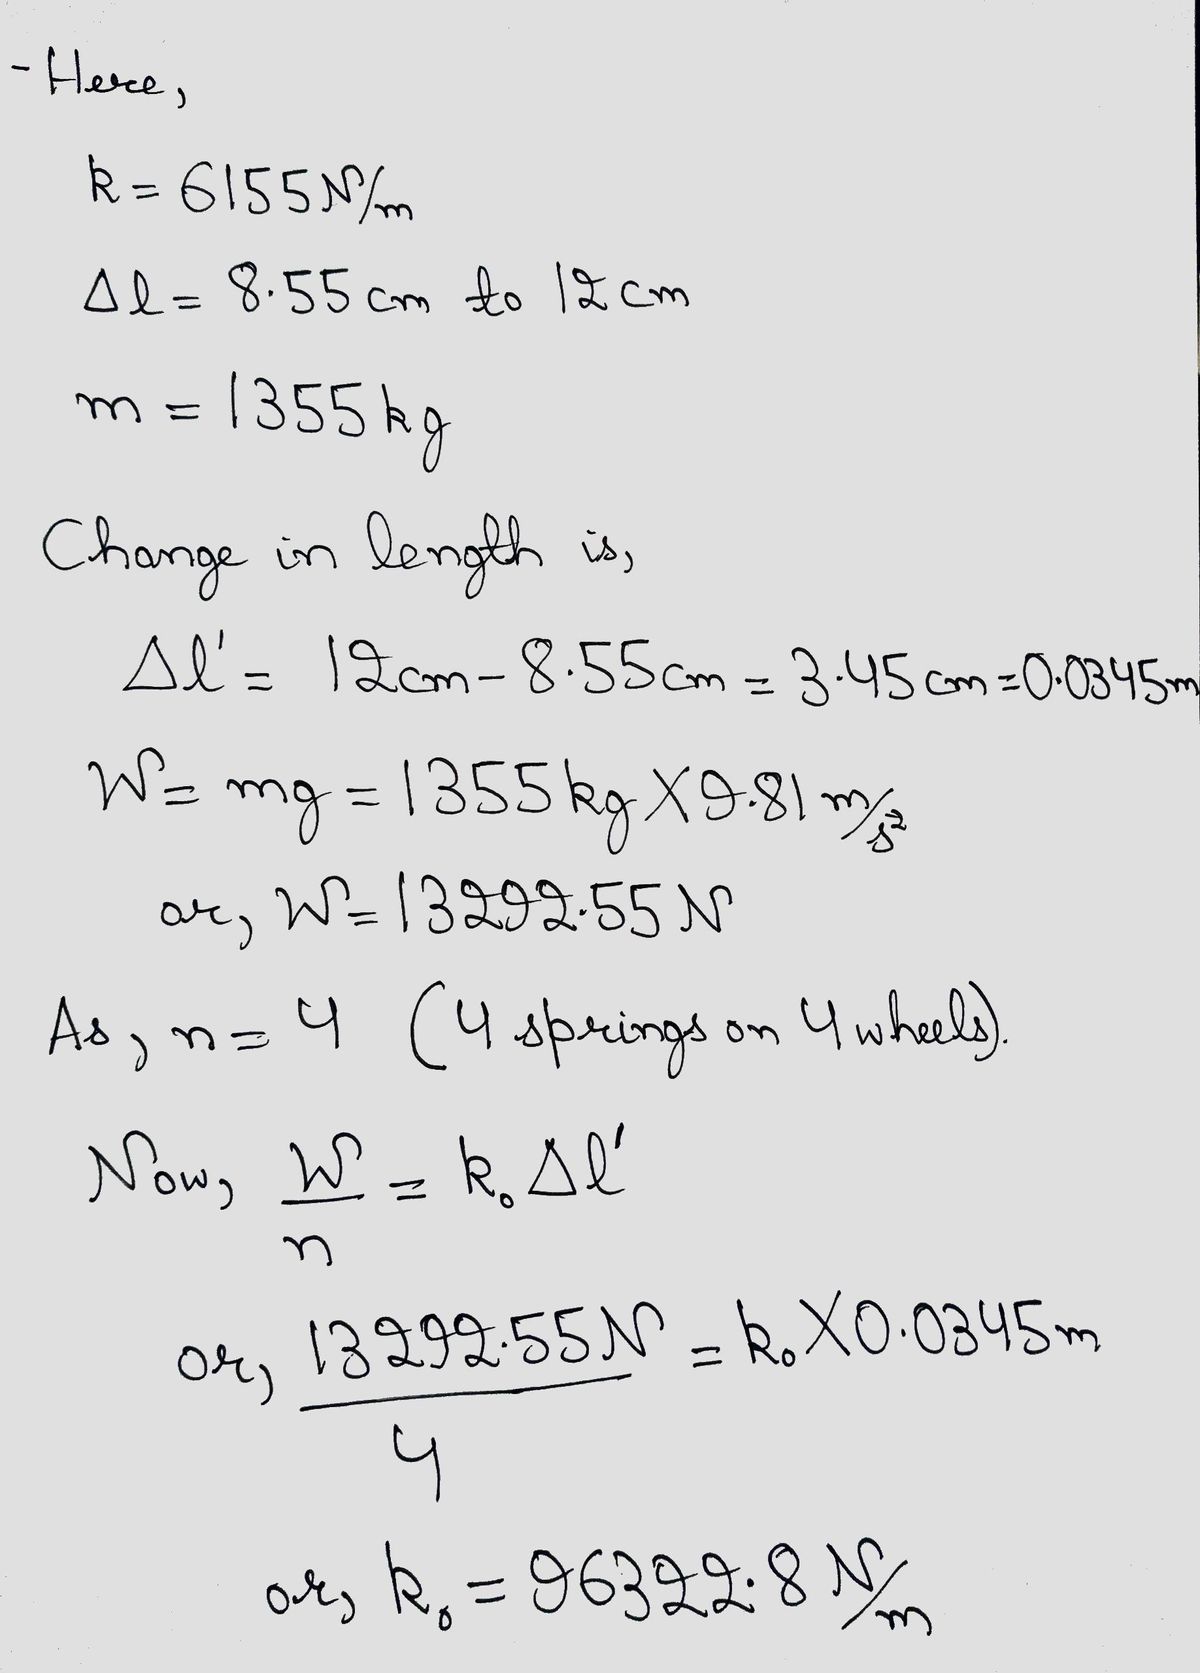 - Here,
k = 6155 N/m
Δl = 8.55 cm to 12 cm
m = 1355 kg
Change in length is,
Δl' = 12cm - 8.55cm = 3.45 cm = 0.0345m
W = mg = 1355 kg X 9.81 m/s²
or, W = 13292.55 N
As, n = 4 (4 springs on 4 wheels).
Now, W/n = k₀ Δl'
or, 13292.55 N/4 = k₀ X 0.0345m
or, k₀ = 96322.8 N/m